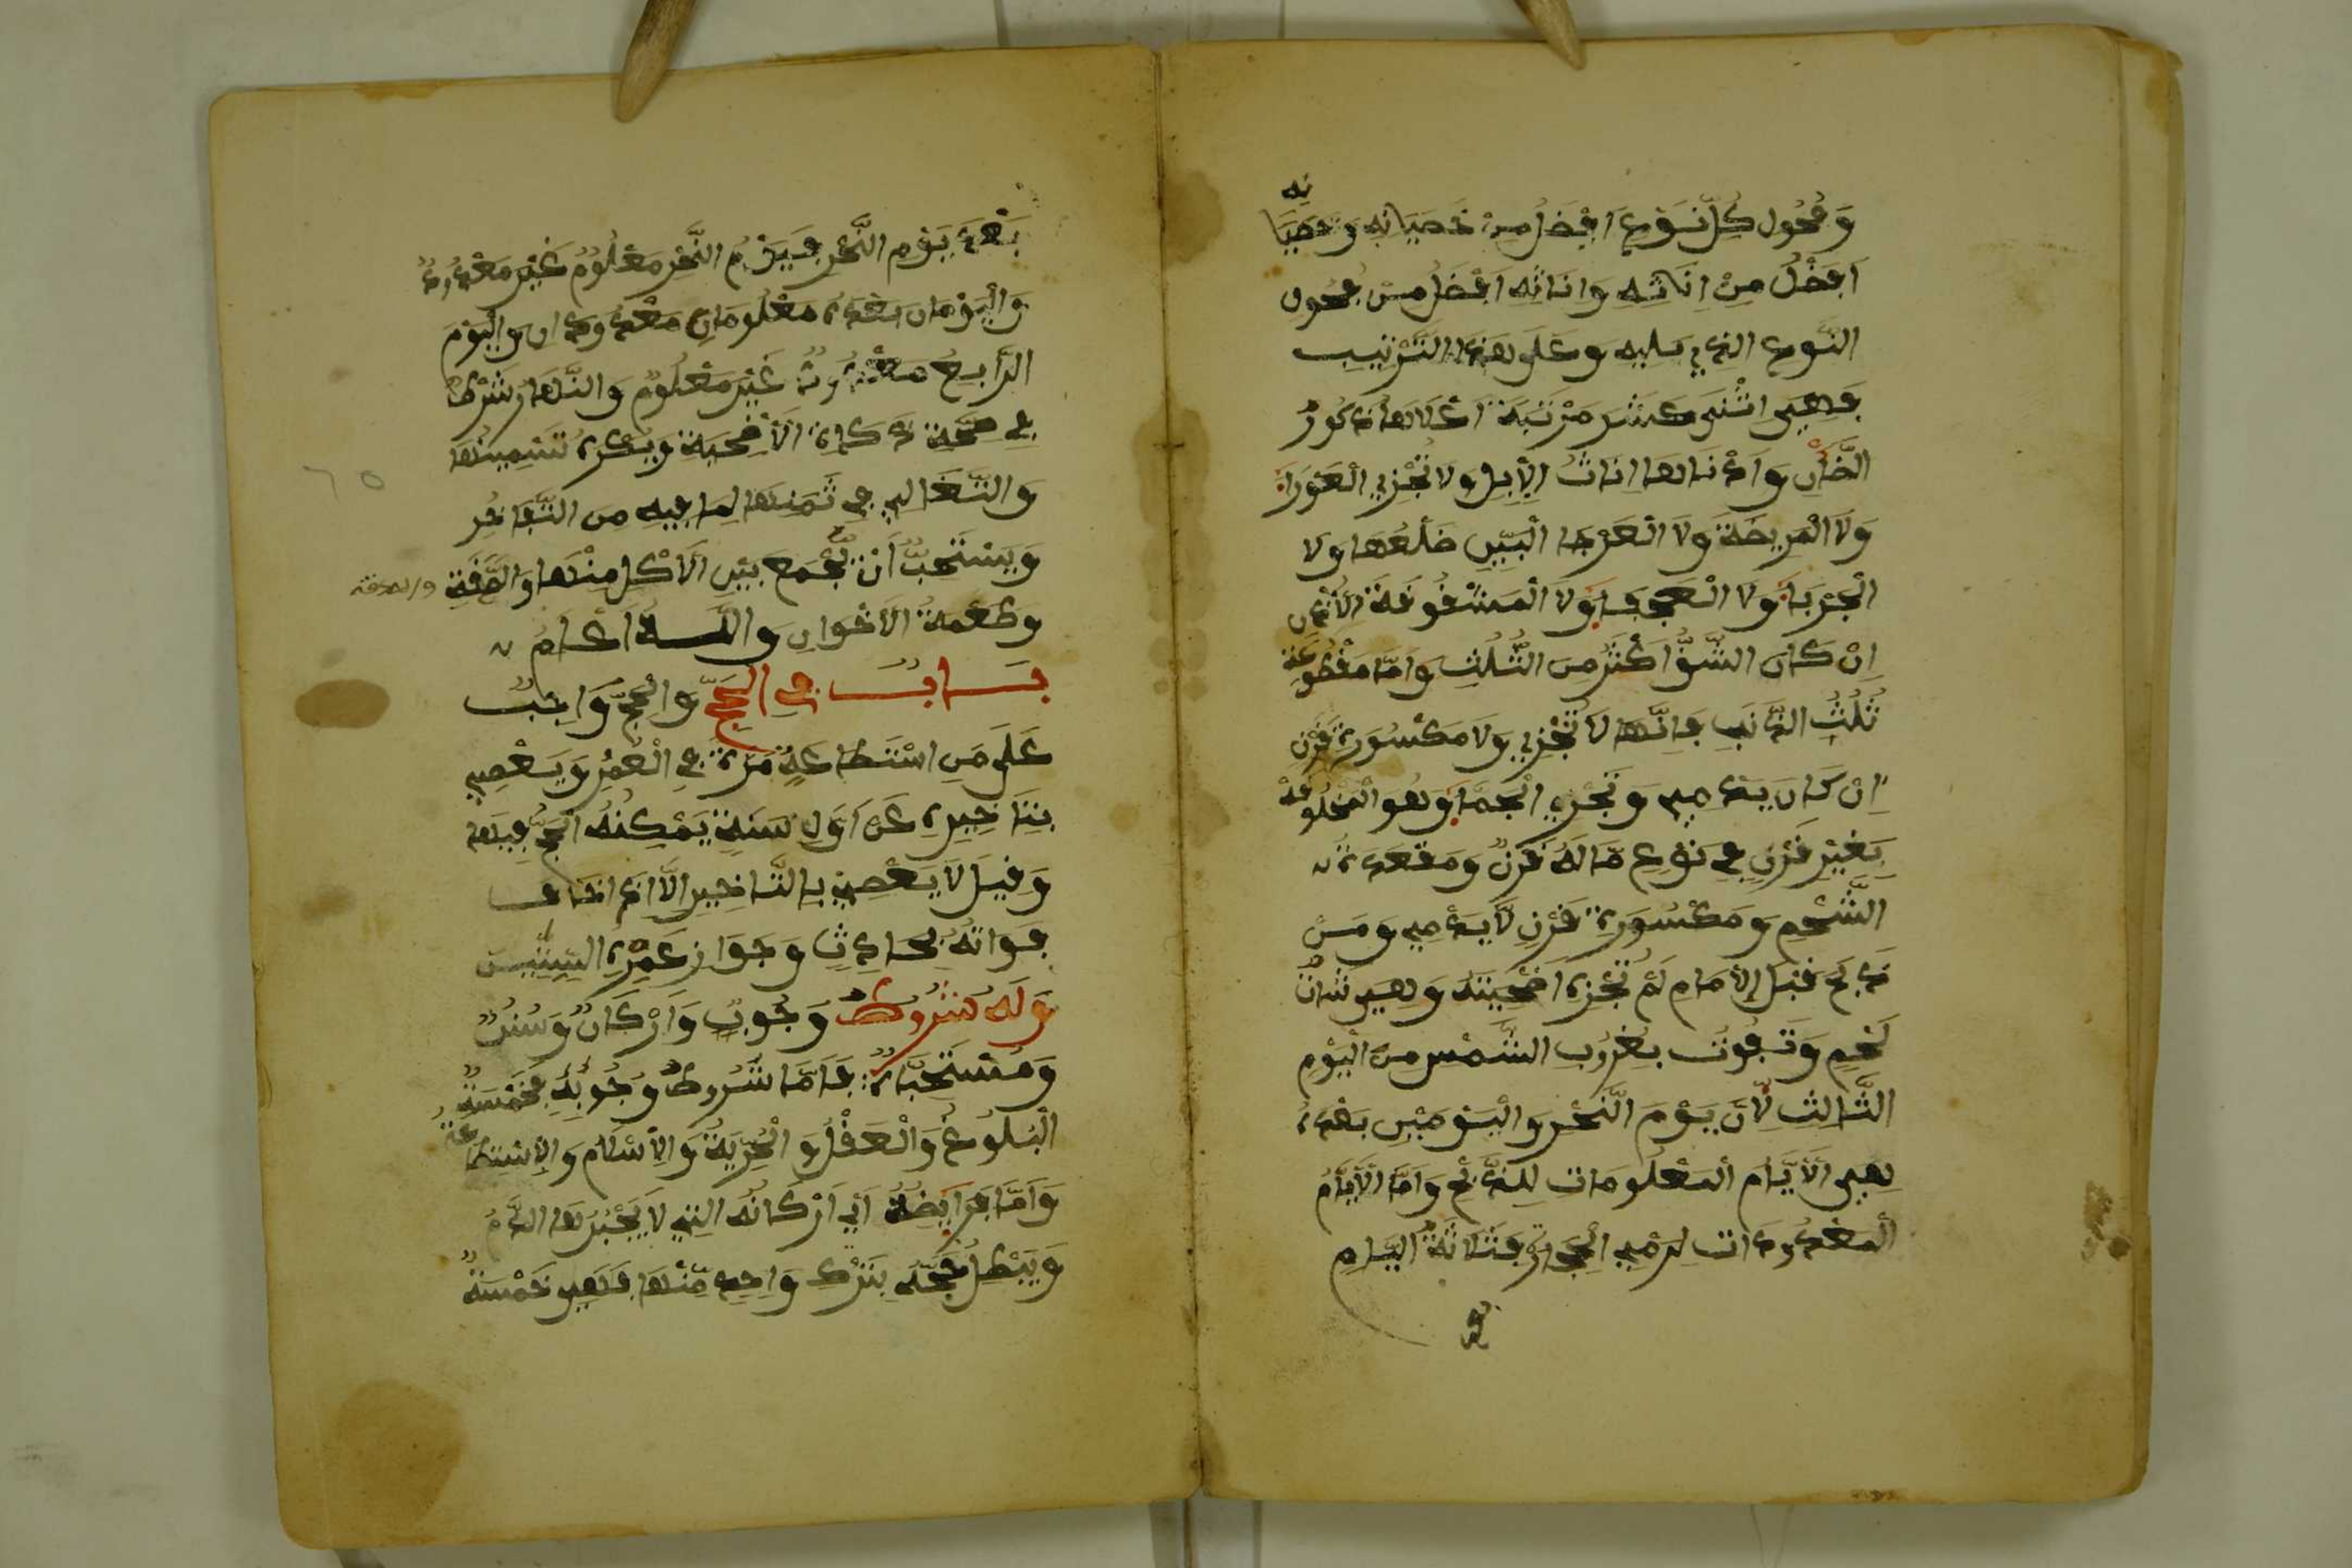 وَفُحُول كُلِّ نَوْعٍ اَفْضَلُ مِنْ خَصيَانِهِ وَخصْيَانِهِ
اَفضْلُ مِنْ اِنَاثِهِ وَاِنَاثِهِ اَفْضَلُ مِنْ فُحُولِ
النَّوعِ الذِي يَلِيهِ وَعَلَى هَذَا التَّرْتِيب
فَهِيَ اثْنَى عَشَر مَرْتَبَة اَعْلَاهَا ذكُورُ
الضَّأْنِ وَاَدْنَاهَا اِنَاثُ الْاِبِل وَلَا تُجْزِي الْعَوْرَا
وَلَا الْمَرِيضَةَ وَلَا الْعَرْجَا الْبَيِّنِ ضَلْعُهَا وَلَا
الْجَرْبَا وَلَا الْعَجْفَا وَلَا الْمَشْقُوقَة الْاُذْنِ
اِنْ كَانَ الشَّقُّ اَكْثَرُ مِنَ الثُّلُثِ وَاَمَّا مَقْطُوعَة
ثُلُثُ الذَّنَبِ فَاِنَّهَا لَا تُجْزِي وَلَا مَكْسُورَة قَرْنٍ
اِنْ كَانَ يَدْمِي وَتُجْزِي الْجَمَّا وَهُوَ الْمَخْلُوقَة
بِغَيْرِ قَرْنٍ فِي نَوْعٍ مَّا لَهُ قَرْنٌ وَمقعَدَة
الشَّحْمِ وَمَكْسُورَة قَرْنٍ لَّا يَدْمِي وَمَنْ
ذَبَحَ قَبْلَ الْاِمَامِ لَمْ تُجْزِه اُضْحِيَتُه وَهِيَ شَاةُ
لَحْمٍ وَتَفُوتُ بِغُرُوبِ الشَّمْسِ مِنَ الْيَوْمِ
الثَّالِثِ لِاَنَّ يَوْمَ النَّحْرِ وَالْيَوْمَيْنِ بَعْدَهُ
هِيَ الْاَيَّام الْمَعْلُومَات لِلذَّبْحِ وَاَمَّا الْاَيَّامُ
الْمَعْدُودَات لِرَمْيِ الْجِمَارِ فَثَلَاثَةُ اليَّامِ
بَعْدَ يَوْمِ النَّحْرِ فَيَوْمُ النَّحْرِ مَعْلُومٌ غَيْر مَعْدُودٌ
وَالْيَوْمَان بَعْدَهُ مَعْلُومَانِ مَعْدُودَان وَالْيَوْمَ
الرَّابِعُ مَعْدُودٌ غَيْر مَعْلُومٌ وَالنَّهَارُ شَرْطٌ
فِي صِحَّةِ ذَكَاة الْاُضْحِيَةِ وَيُكْرَهُ تَسْمِينُهَا
وَالتَّغَالِي فِي ثَمَنِهَا لِمَا فِيهِ مِنَ التَّفَاخُرِ
وَيَسْتَحَبُّ اَنْ يَجْمَعَ بَيْنِ الْاَكْلِ مِنْهَا وَالصَّدَقَةِ والصدقة
وَطُعْمَةُ الْاَخْوَانِ وَاللَّهُ اَعْلَمُ
بَابٌ فِي الْحَجِّ وَالْحَجُّ وَاجِبٌ
عَلَى مَنِ اسْتَطَاعَهُ مَرَّة فِي الْعُمُرِ وَيَعْصِي
بِتَاخِيرِهِ عَنْ اَوَّلِ سَنَةٍ يَمْكِنُهُ الْحَجُّ فِيهَا
وَقِيلَ لَا يَعْصِي بِالتَّاخِيرِ اِلَّا اذَا خَافَ
فَوَاتَهُ بِحَادِثٍ وَجَوَازِ عُمْرِهِ السِّتِّينَ
وَلَهُ شُرُوطُ وُجُوبٍ وَاَرْكَانٌ وَسُنَنٌ
وَمُسْتَحَبَّاتٌ فَاَمَّا شُرُوطُ وُجُوبِهِ فَخَمْسَةٌ
الْبُلُوغُ وَالْعَقْلُ وَالْحُرِّيَةُ وَالْاِسْلَام وَالْاِسْتِطَاعَةُ
وَاَمَّا فَرَايِضُهُ اَي اَرْكَانُهُ التِي لَا يَجْبُرُهَا الدَّمُ
وَيَبْطِلُ حَجُّهُ بِتَرْكِ وَاحِدٍ مِّنْهَا فَهِيَ خَمْسَةٌ